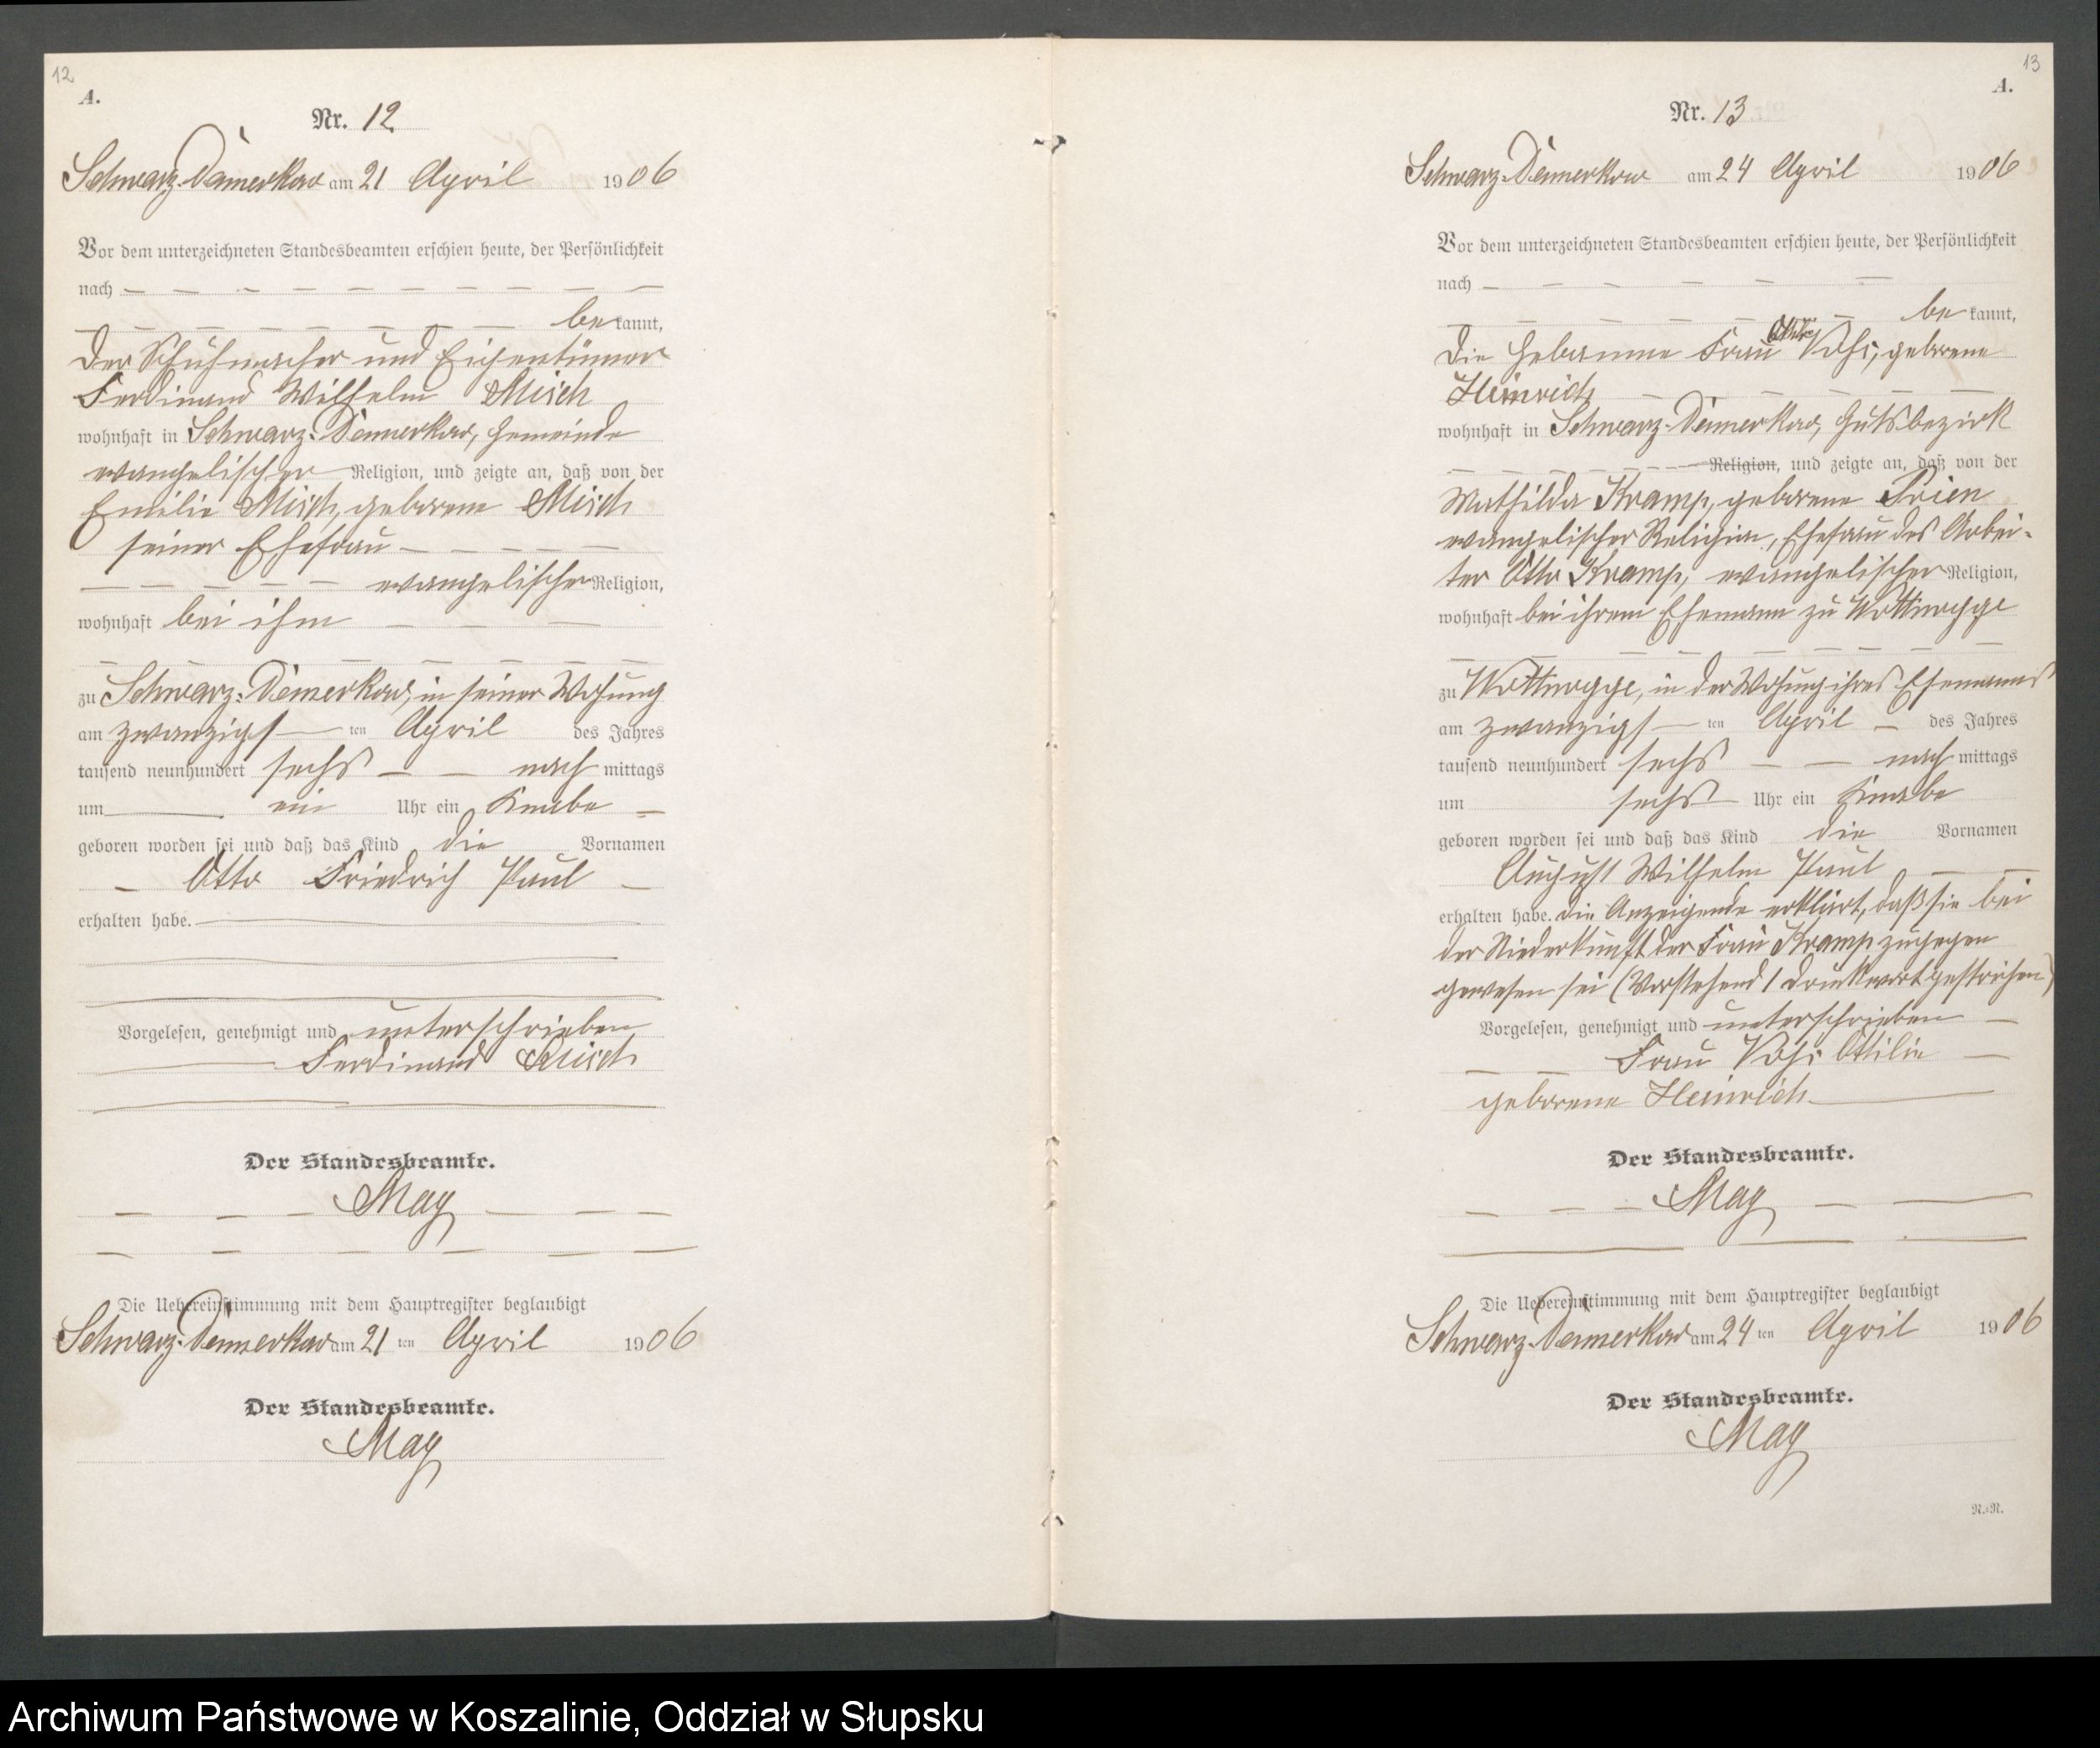 12
A.
Nr. 12
Schwarz-Damerkow am 21 April 1906
Vor dem unterzeichneten Standesbeamten erschien heute, der Persönlichkeit
nach
bekannt,
der Schuhmacher und Eigentümer
Ferdinand Wilhelm Misch
wohnhaft in Schwarz-Damerkow, Gemeinde
evangelischer Religion, und zeigte an, daß von der
Emilie Misch, geborene Misch
seiner Ehefrau
evangelischer Religion,
wohnhaft bei ihm
zu Schwarz-Damerkow, in seiner Wohnung
am zwanzigsten April des Jahres
tausend neunhundert sechs nachmittags
um ein Uhr ein Knabe
geboren worden sei und daß das Kind die Vornamen
Otto Friedrich Paul
erhalten habe.
Vorgelesen, genehmigt und unterschrieben
Ferdinand Misch
Der Standesbeamte.
Mag
Die Uebereinstimmung mit dem Hauptregister beglaubigt
Schwarz-Damerkow am 21 ten April 1906
Der Standesbeamte.
Mag
13
A.
Nr. 13
Schwarz-Damerkow am 24 April 1906
Vor dem unterzeichneten Standesbeamten erschien heute, der Persönlichkeit
nach
bekannt,
Die Hebamme Frau Vohs, geborene
Heinrich
wohnhaft in Schwarz-Damerkow, Gutsbezirk
Religion, und zeigte an, daß von der
Mathilda Kramp, geborene Prien
evangelischer Religion, Ehefrau des Arbei-
ter Otto Kramp, evangelischer Religion,
wohnhaft bei ihrem Ehemann zu Wottnogge
zu Wottnogge, in der Wohnung ihres Ehemanns
am zwanzigsten April des Jahres
tausend neunhundert sechs nachmittags
um sechs Uhr ein Knabe
geboren worden sei und daß das Kind die Vornamen
August Wilhelm Paul
erhalten habe. Die Anzeigende erklärt, daß sie bei
der Niederkunft der Frau Kramp zugegen
gewesen sei (Vorstehend 1 Druckwort gestrichen)
Vorgelesen, genehmigt und unterschrieben
Frau Vohs Ottilie
geborene Heinrich
Der Standesbeamte.
Mag
Die Uebereinstimmung mit dem Hauptregister beglaubigt
Schwarz-Damerkow am 24 ten April 1906
Der Standesbeamte.
Mag
N.=N.
Archiwum Państwowe w Koszalinie, Oddział w Słupsku